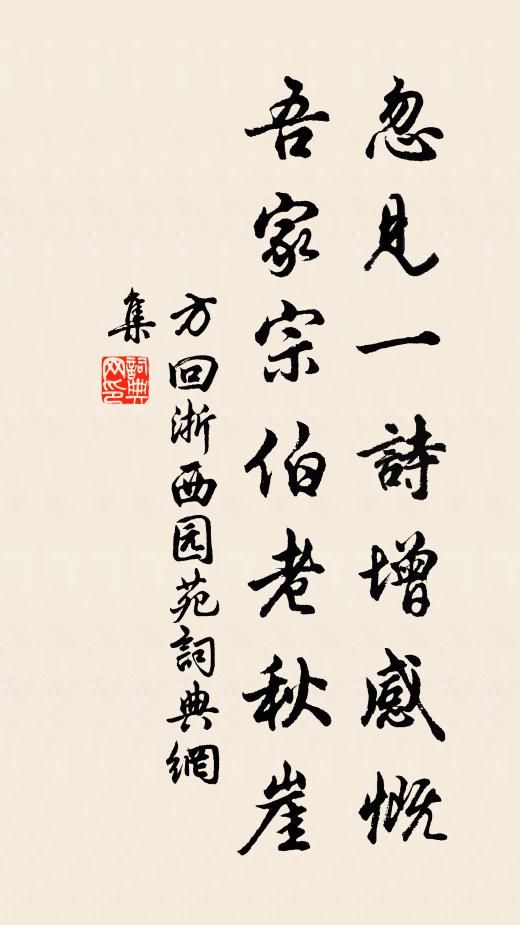 忽見一詩增感慨
吾家宗伯老秋崖
方回浙西园苑詞典網
集
詞典網印